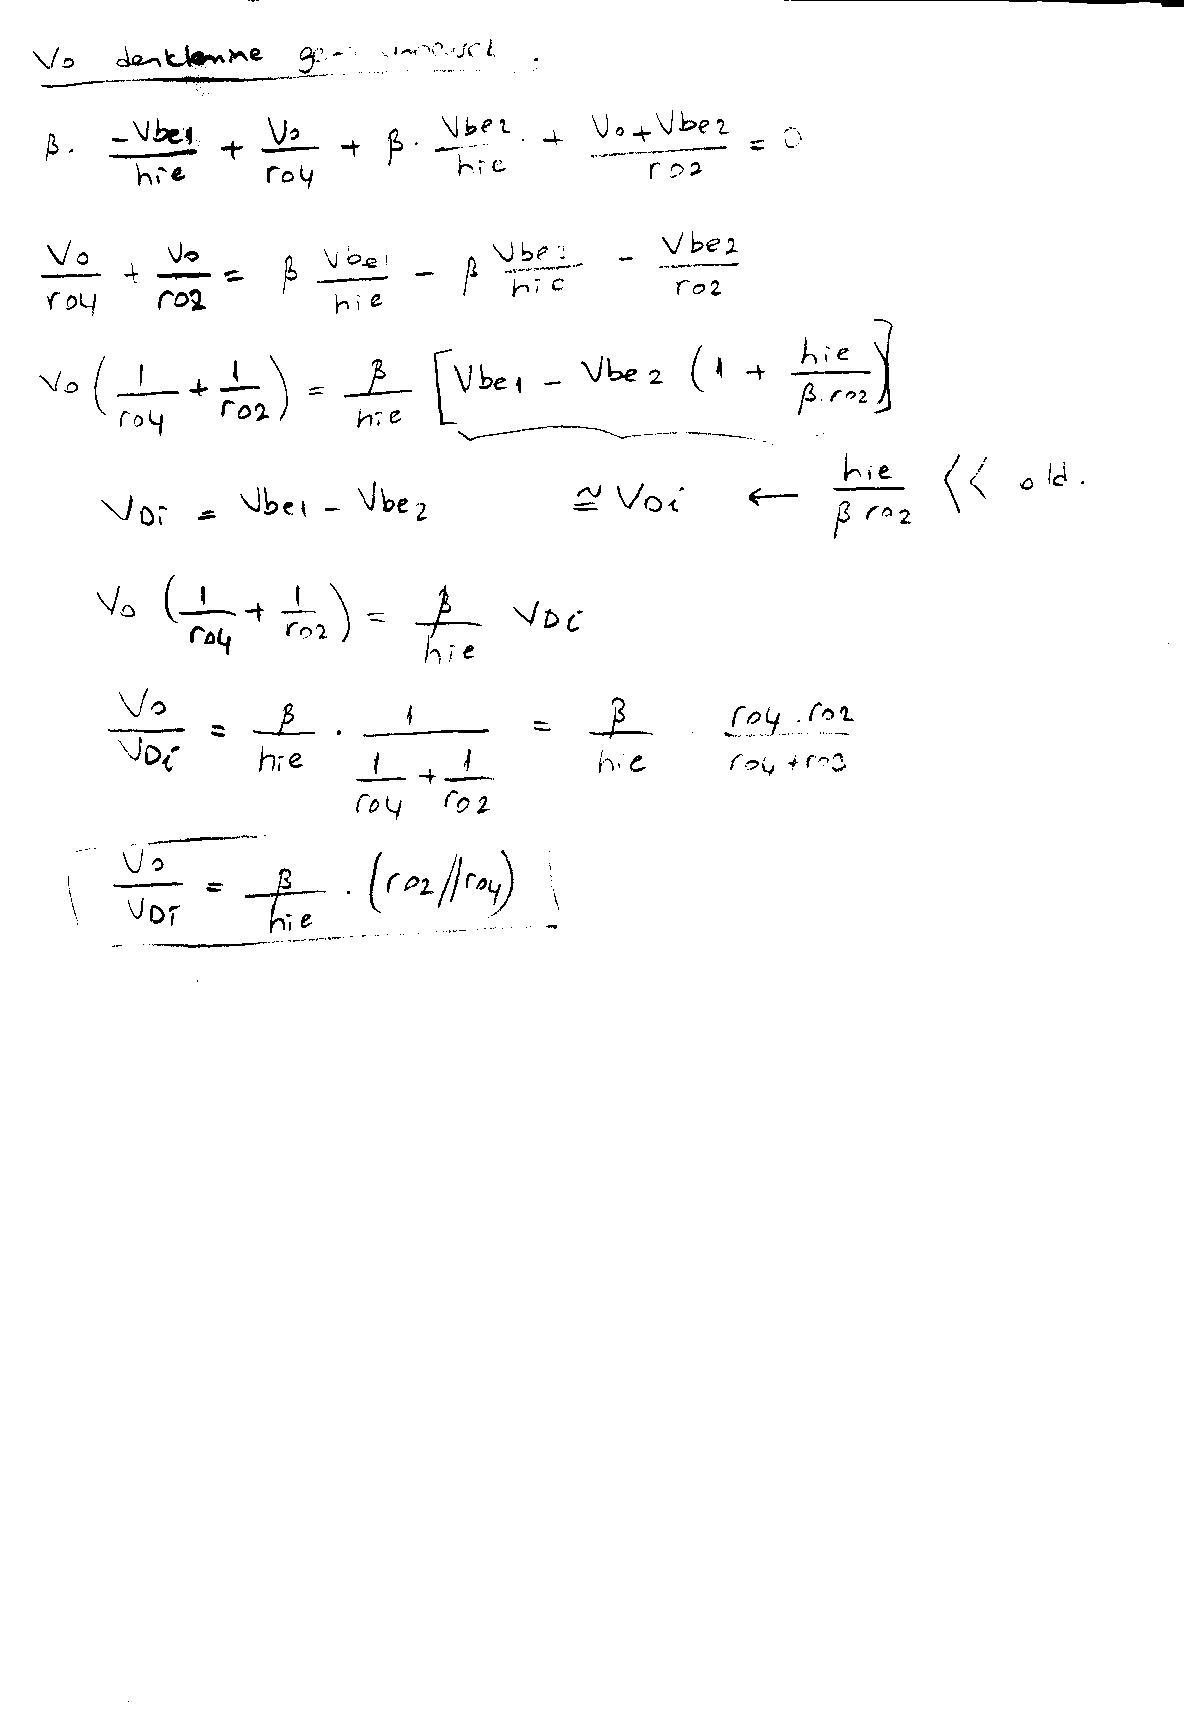 Vo denklemine
β. -Vbe1/hie + Vo/ro4 + β. Vbe2/hie + Vo+Vbe2/ro2 = 0
Vo/ro4 + Vo/ro2 = β Vbe1/hie - β Vbe2/hie - Vbe2/ro2
Vo (1/ro4 + 1/ro2) = β/hie [Vbe1 - Vbe2 (1 + hie/β.ro2]
VDi = Vbe1 - Vbe2 ≅ VDi ← hie/β ro2 << old.
Vo (1/ro4 + 1/ro2) = β/hie VDi
Vo/VDi = β/hie . 1/(1/ro4 + 1/ro2) = β/hie . ro4.ro2/ro4+ro2
Vo/VDi = β/hie . (ro2//ro4)